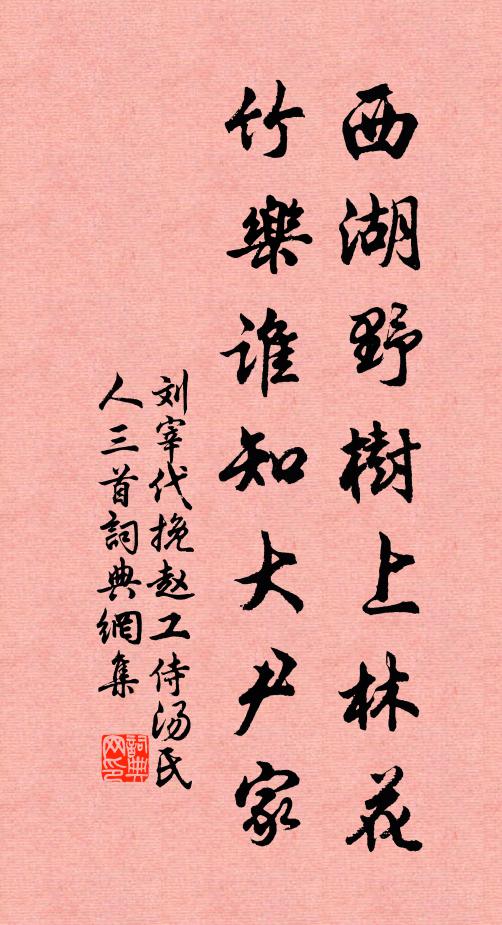 西湖野樹上林花
竹樂谁知大尹家
刘宰代挽赵工侍汤氏
人三首詞典網集
詞典网印